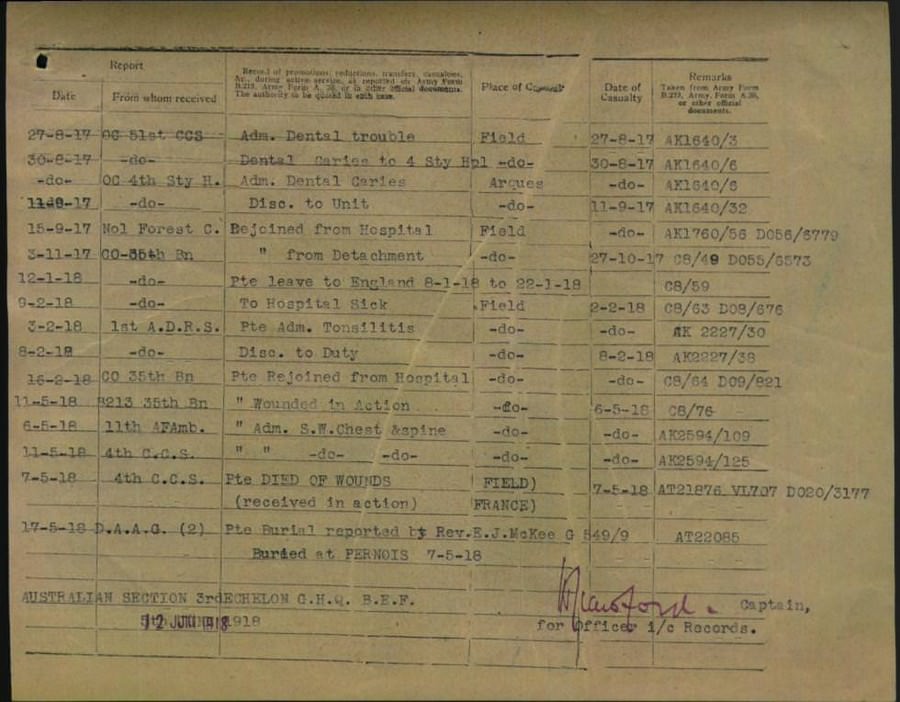 Report
Record of promotions, reductions, transfers, casualties,
&c., during active service, as reported on Army Form
B.213, Army Form A. 36, or in other official documents.
The authority to be quoted in each case.
Date From whom received Place of Casualty Date of Casualty
Remarks
Taken from Army Form
B.213, Army Form A.36,
or other official
documents.
27-8-17 OC 51st CCS Adm. Dental trouble Field 27-8-17 AK1640/3
30-8-17 -do- Dental Caries to 4 Sty Hpl -do- 30-8-17 AK1640/6
-do- OC 4th Sty H. Adm. Dental Caries Arques -do- AK1640/6
-17 -do- Disc. to Unit -do- 11-9-17 AK1640/32
15-9-17 No1 Forest C. Rejoined from Hospital Field -do- AK1760/56 D056/6779
3-11-17 CO 35th Bn " from Detachment -do- 27-10-17 C8/49 D055/6573
12-1-18 -do- Pte leave to England 8-1-18 to 22-1-18 C8/59
9-2-18 -do- To Hospital Sick .Field 2-2-18 C8/63 D08/676
3-2-18 1st A.D.R.S. Pte Adm. Tonsilitis -do- -do- AK 2227/30
8-2-18 -do- Disc. to Duty -do- 8-2-18 AK2227/38
16-2-18 CO 35th Bn Pte Rejoined from Hospital -do- -do- C8/64 D09/821
11-5-18 B213 35th Bn " Wounded in Action -do- 6-5-18 C8/76
6-5-18 11th AFAmb. " Adm. S.W.Chest &spine -do- -do- AK2594/109
11-5-18 4th C.C.S. " " -do- -do- -do- -do- AK2594/125
7-5-18 4th C.C.S. Pte DIED OF WOUNDS FIELD) 7-5-18 AT21876 VL707 D020/3177
(received in action) FRANCE)
17-5-18 D.A.A.G. (2) Pte Burial reported by Rev.E.J.McKee G 549/9 AT22085
Buried at PERNOIS 7-5-18
AUSTRALIAN SECTION 3rd ECHELON G.H.Q. B.E.F.
12 JUN 1918
Captain,
for Officer i/c Records.